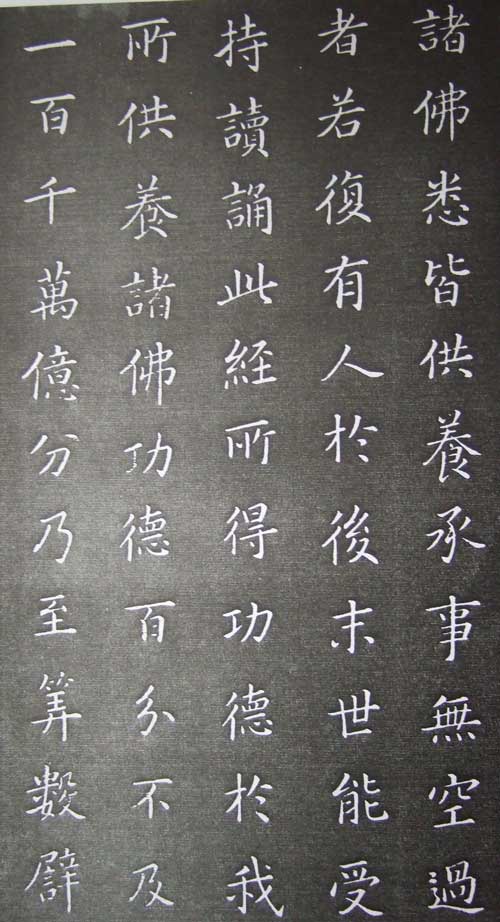 諸佛悉皆供養承事無空過
者若復有人於後末世能受
持讀誦此経所得功德於我
所供養諸佛功德百分不及
一百千萬億分乃至筭數譬